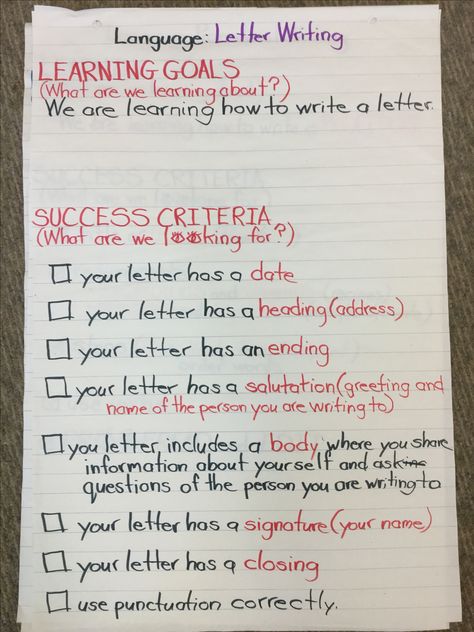 Language: Letter Writing
LEARNING GOALS
(What are we learning about?)
We are learning how to write a letter.
SUCCESS CRITERIA
(What are we looking for?)
your letter has a date
your letter has a heading (address)
your letter has an ending
your letter has a salutation (greeting and
name of the person you are writing to)
you letter includes a body where you share
information about yourself and asking
questions of the person you are writing to
your letter has a signature (your name)
your letter has a closing
use punctuation correctly.